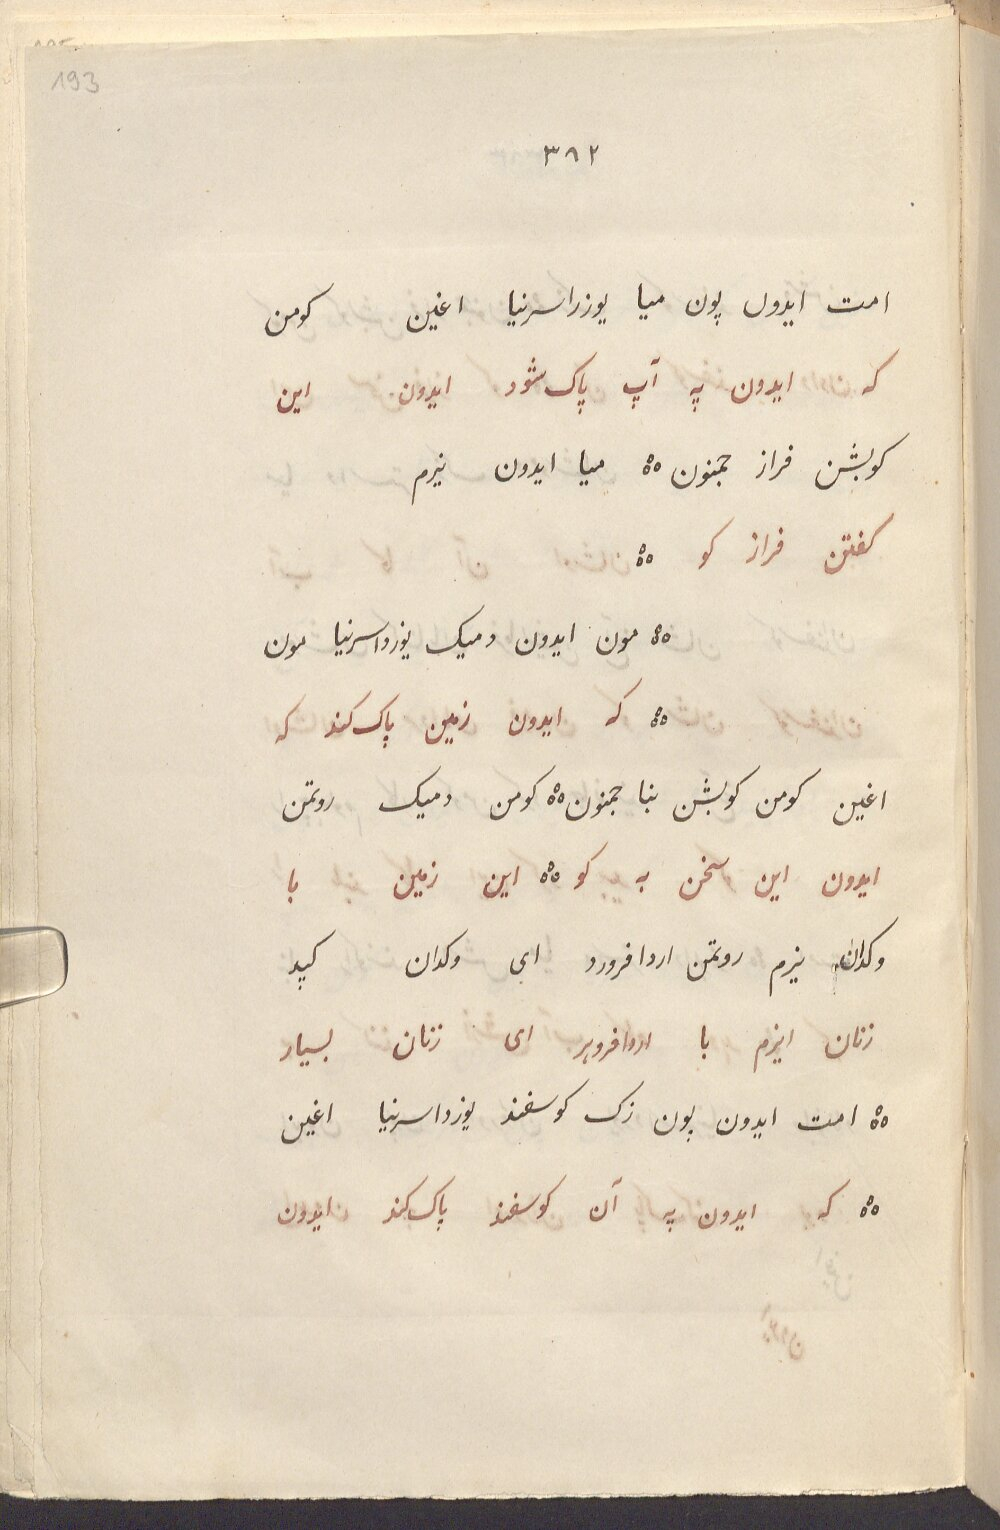 193
۳۸۲
امت ایدول پون میا یوزراسرنیا اغین کومن
که ایدون په آپ پاک شود ایدون این
کوبشن فراز جمنون ஃ میا ایدون نیرم
کفتن فراز کو ஃ
ஃ مون ایدون دمیک یوزداسرنیا مون
ஃ که ایدون زمین پاک کند که
اغین کومن کوبشن بنا جمنون ஃ کومن دمیک روتمن
ایدون این سخن به کو ஃ این زمین با
وکدان یزم روتمن اردافرورد ای وکدان کبد
زنان ایزم با اردافروهر ای زنان بسیار
ஃ امت ایدون پون زک کوسفند یوزداسرنیا اغین
ஃ که ایدون په آن کوسفند پاک کند ایدون